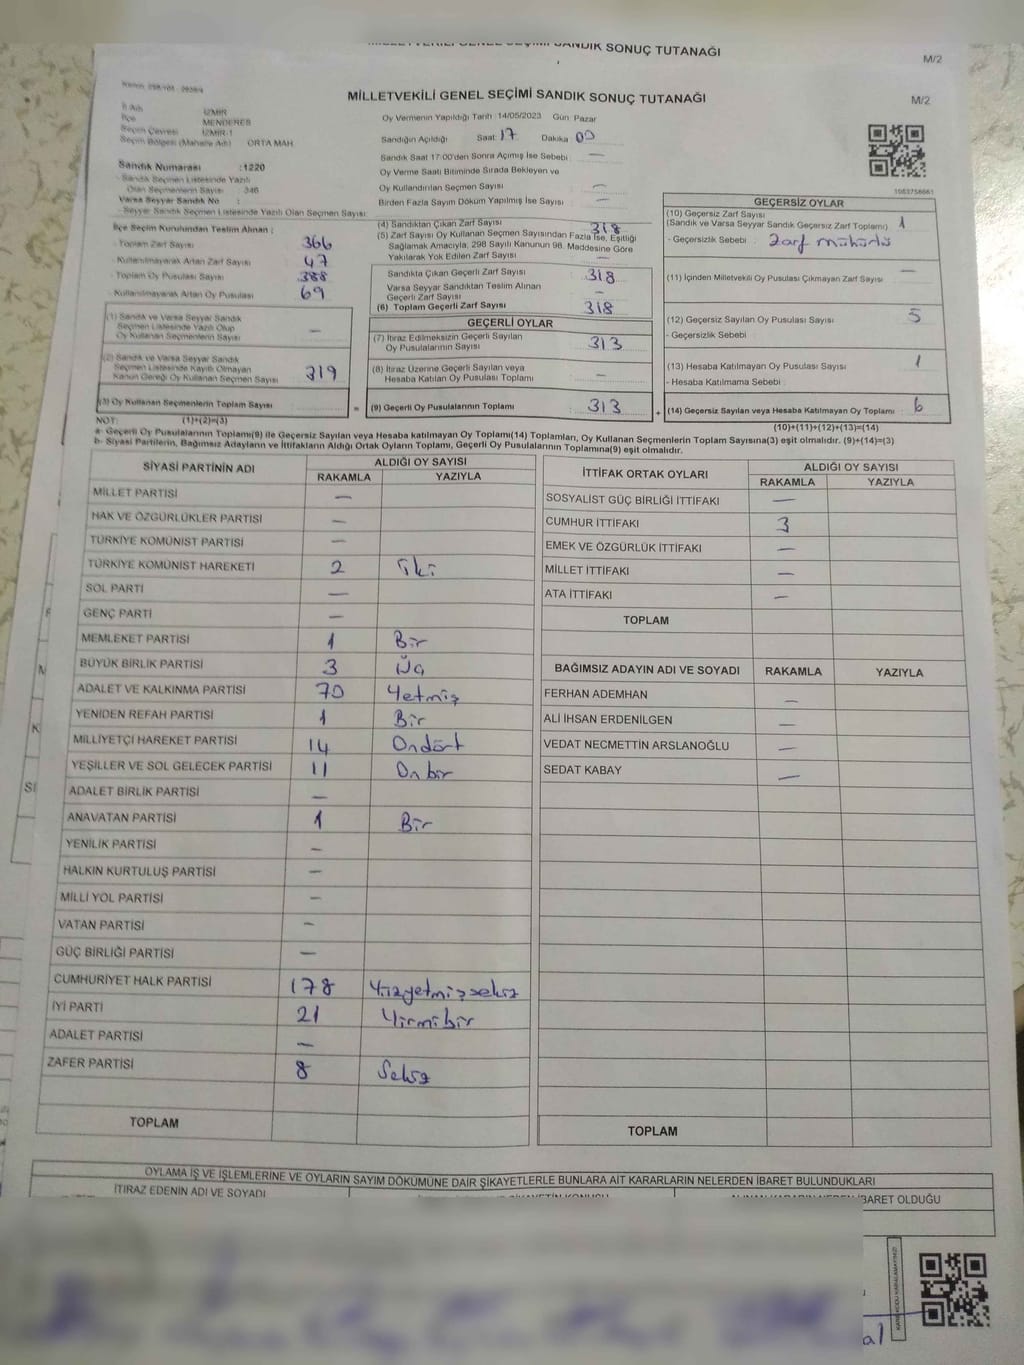 SANDIK SONUÇ TUTANAĞI
M/2
MİLLETVEKİLİ GENEL SEÇİMİ SANDIK SONUÇ TUTANAĞI
M/2
İl Adı : İZMİR
İlçe MENDERES
Seçim Çevresi İZMİR-1
Seçim Bölgesi (Mahalle Adı) ORTA MAH.
Sandık Numarası :1220
- Sandık Seçmen Listesinde Yazılı
Olan Seçmenlerin Sayısı : 346
Varsa Seyyar Sandık No :
- Seyyar Sandık Seçmen Listesinde Yazılı Olan Seçmen Sayısı:
İlçe Seçim Kurulundan Teslim Alınan :
- Toplam Zarf Sayısı 366
- Kullanılmayarak Artan Zarf Sayısı 47
- Toplam Oy Pusulası Sayısı 388
- Kullanılmayarak Artan Oy Pusulası 69
(1) Sandık ve Varsa Seyyar Sandık
Seçmen Listesinde Yazılı Olup
Oy Kullanan Seçmenlerin Sayısı —
(2) Sandık ve Varsa Seyyar Sandık
Seçmen Listesinde Kayıtlı Olmayan
Kanun Gereği Oy Kullanan Seçmen Sayısı 319
(3) Oy Kullanan Seçmenlerin Toplam Sayısı
(1)+(2)=(3)
Oy Vermenin Yapıldığı Tarih 14/05/2023 Gün: Pazar
Sandığın Açıldığı Saat: 17 Dakika: 00
Sandık Saat 17:00'den Sonra Açılmış İse Sebebi : —
Oy Verme Saati Bitiminde Sırada Bekleyen ve
Oy Kullandırılan Seçmen Sayısı : —
Birden Fazla Sayım Döküm Yapılmış İse Sayısı : —
(4) Sandıktan Çıkan Zarf Sayısı : 318
(5) Zarf Sayısı Oy Kullanan Seçmen Sayısından Fazla İse, Eşitliği
Sağlamak Amacıyla, 298 Sayılı Kanunun 98. Maddesine Göre
Yakılarak Yok Edilen Zarf Sayısı : —
Sandıkta Çıkan Geçerli Zarf Sayısı : 318
Varsa Seyyar Sandıktan Teslim Alınan
Geçerli Zarf Sayısı : —
(6) Toplam Geçerli Zarf Sayısı : 318
GEÇERLİ OYLAR
(7) İtiraz Edilmeksizin Geçerli Sayılan
Oy Pusulalarının Sayısı : 313
(8) İtiraz Üzerine Geçerli Sayılan veya
Hesaba Katılan Oy Pusulası Toplamı : —
= (9) Geçerli Oy Pusulalarının Toplamı : 313 +
1063758661
GEÇERSİZ OYLAR
(10) Geçersiz Zarf Sayısı
(Sandık ve Varsa Seyyar Sandık Geçersiz Zarf Toplamı) : 1
- Geçersizlik Sebebi : Zarf mühürlü
(11) İçinden Milletvekili Oy Pusulası Çıkmayan Zarf Sayısı : —
(12) Geçersiz Sayılan Oy Pusulası Sayısı : 5
- Geçersizlik Sebebi :
(13) Hesaba Katılmayan Oy Pusulası Sayısı : 1
- Hesaba Katılmama Sebebi :
(14) Geçersiz Sayılan veya Hesaba Katılmayan Oy Toplamı : 6
(10)+(11)+(12)+(13)=(14)
NOT:
a- Geçerli Oy Pusulalarının Toplamı(9) ile Geçersiz Sayılan veya Hesaba katılmayan Oy Toplamı(14) Toplamları, Oy Kullanan Seçmenlerin Toplam Sayısına(3) eşit olmalıdır. (9)+(14)=(3)
b- Siyasi Partilerin, Bağımsız Adayların ve İttifakların Aldığı Ortak Oyların Toplamı, Geçerli Oy Pusulalarının Toplamına(9) eşit olmalıdır.
SİYASİ PARTİNİN ADI ALDIĞI OY SAYISI
RAKAMLA YAZIYLA
MİLLET PARTİSİ —
HAK VE ÖZGÜRLÜKLER PARTİSİ —
TÜRKİYE KOMÜNİST PARTİSİ —
TÜRKİYE KOMÜNİST HAREKETİ 2 iki
SOL PARTİ —
GENÇ PARTİ —
MEMLEKET PARTİSİ 1 Bir
BÜYÜK BİRLİK PARTİSİ 3 Üç
ADALET VE KALKINMA PARTİSİ 70 Yetmiş
YENİDEN REFAH PARTİSİ 1 Bir
MİLLİYETÇİ HAREKET PARTİSİ 14 Ondört
YEŞİLLER VE SOL GELECEK PARTİSİ 11 Onbir
ADALET BİRLİK PARTİSİ —
ANAVATAN PARTİSİ 1 Bir
YENİLİK PARTİSİ —
HALKIN KURTULUŞ PARTİSİ —
MİLLİ YOL PARTİSİ —
VATAN PARTİSİ —
GÜÇ BİRLİĞİ PARTİSİ —
CUMHURİYET HALK PARTİSİ 178 Yüzyetmişsekiz
İYİ PARTİ 21 Yirmibir
ADALET PARTİSİ —
ZAFER PARTİSİ 8 Sekiz
TOPLAM
İTTİFAK ORTAK OYLARI ALDIĞI OY SAYISI
RAKAMLA YAZIYLA
SOSYALİST GÜÇ BİRLİĞİ İTTİFAKI —
CUMHUR İTTİFAKI 3
EMEK VE ÖZGÜRLÜK İTTİFAKI —
MİLLET İTTİFAKI —
ATA İTTİFAKI —
TOPLAM
BAĞIMSIZ ADAYIN ADI VE SOYADI RAKAMLA YAZIYLA
FERHAN ADEMHAN —
ALİ İHSAN ERDENİLGEN —
VEDAT NECMETTİN ARSLANOĞLU —
SEDAT KABAY —
TOPLAM
OYLAMA İŞ VE İŞLEMLERİNE VE OYLARIN SAYIM DÖKÜMÜNE DAİR ŞİKAYETLERLE BUNLARA AİT KARARLARIN NELERDEN İBARET BULUNDUKLARI
İTİRAZ EDENİN ADI VE SOYADI
BARET OLDUĞU